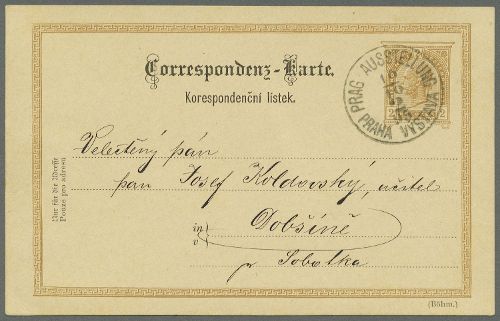 Correspondenz-Karte.
Korespondenční lístek.
PRAG AUSSTELLUNG
PRAHA VÝSTAVA
2 2
Nur für die Adresse
Pouze pro adresu
Velectěný pán
pan Josef Koldovský, učitel
in
v
Dobšíně
pr Sobotka
(Böhm.)